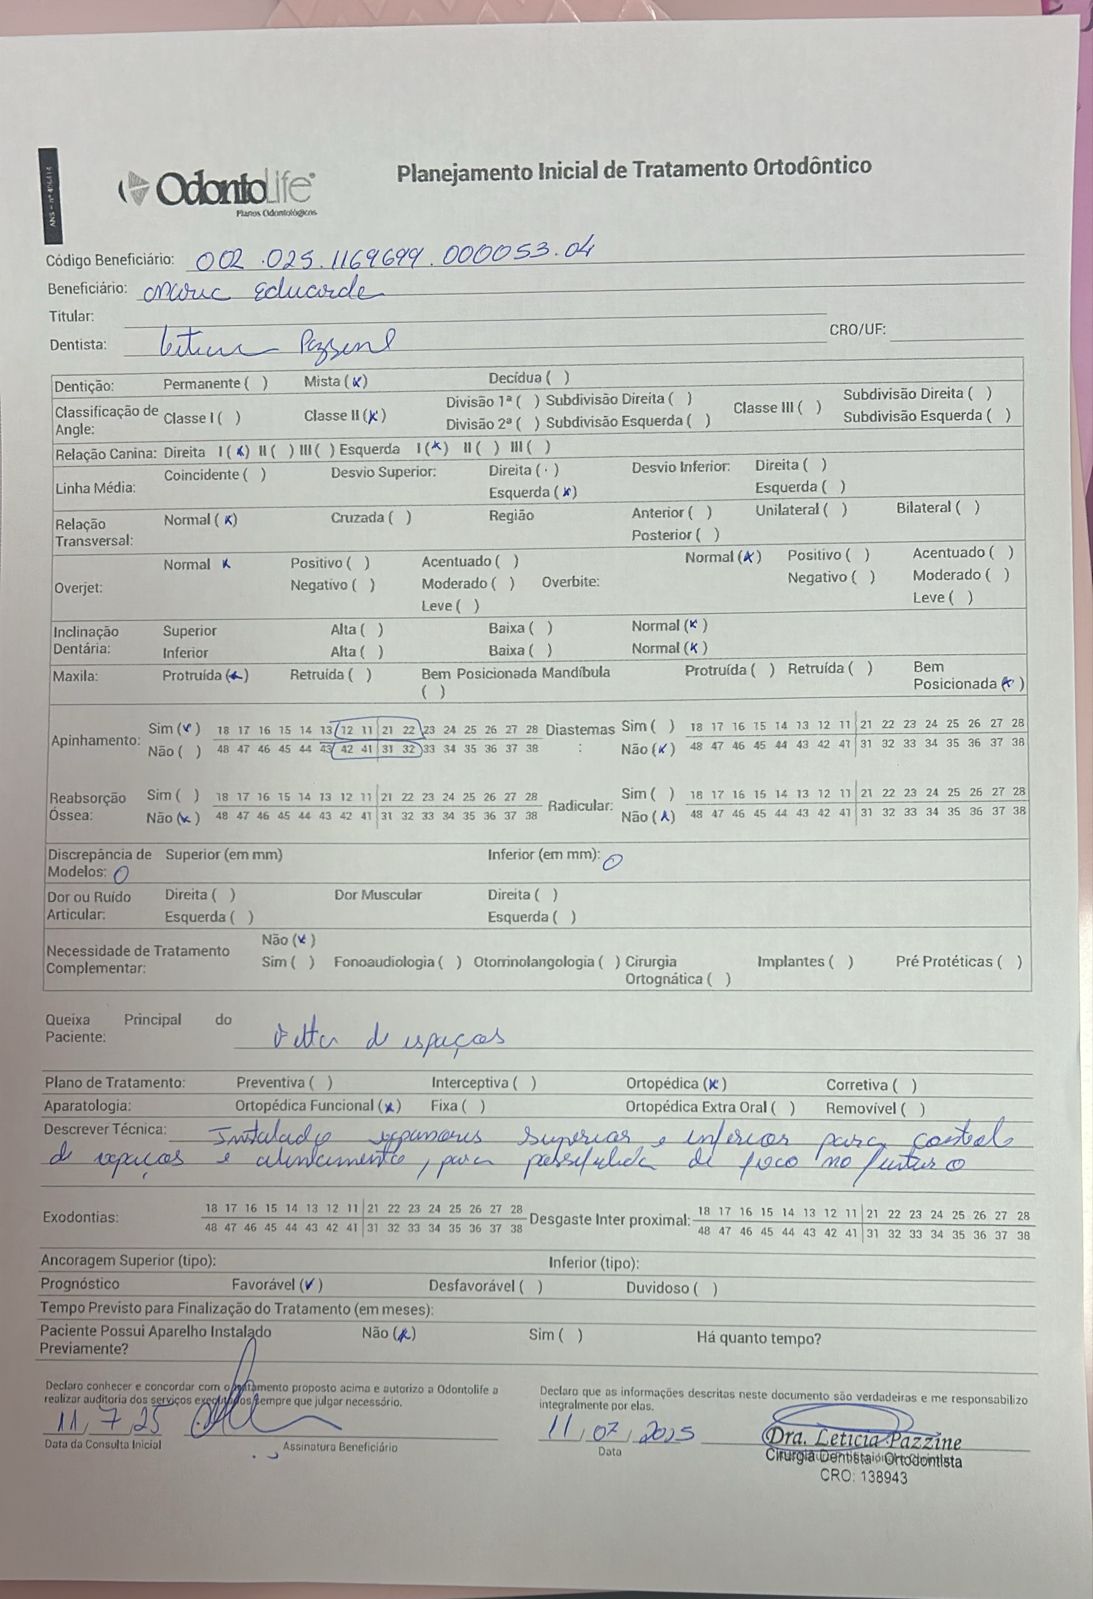 ANS - nº 406414
OdontoLife
Planos Odontológicos
Planejamento Inicial de Tratamento Ortodôntico
Código Beneficiário: 002.025.1169699.000053.04
Beneficiário: Maria Eduarda
Titular:
Dentista: CRO/UF:
Dentição: Permanente ( ) Mista (x) Decídua ( )
Classificação de Angle: Classe I ( ) Classe II (x) Divisão 1ª ( ) Subdivisão Direita ( ) Classe III ( ) Subdivisão Direita ( )
Divisão 2ª ( ) Subdivisão Esquerda ( ) Subdivisão Esquerda ( )
Relação Canina: Direita I (x) II ( ) III ( ) Esquerda I (x) II ( ) III ( )
Linha Média: Coincidente ( ) Desvio Superior: Direita ( ) Desvio Inferior: Direita ( )
Esquerda (x) Esquerda ( )
Relação Transversal: Normal (x) Cruzada ( ) Região Anterior ( ) Unilateral ( ) Bilateral ( )
Posterior ( )
Overjet: Normal x Positivo ( ) Acentuado ( ) Overbite: Normal (x) Positivo ( ) Acentuado ( )
Negativo ( ) Moderado ( ) Negativo ( ) Moderado ( )
Leve ( ) Leve ( )
Inclinação Dentária: Superior Alta ( ) Baixa ( ) Normal (x)
Inferior Alta ( ) Baixa ( ) Normal (x)
Maxila: Protruída (x) Retruída ( ) Bem Posicionada ( ) Mandíbula Protruída ( ) Retruída ( ) Bem Posicionada (x)
Apinhamento: Sim (x) 18 17 16 15 14 13 12 11 21 22 23 24 25 26 27 28 Diastemas: Sim ( ) 18 17 16 15 14 13 12 11 21 22 23 24 25 26 27 28
Não ( ) 48 47 46 45 44 43 42 41 31 32 33 34 35 36 37 38 Não (x) 48 47 46 45 44 43 42 41 31 32 33 34 35 36 37 38
Reabsorção Óssea: Sim ( ) 18 17 16 15 14 13 12 11 21 22 23 24 25 26 27 28 Radicular: Sim ( ) 18 17 16 15 14 13 12 11 21 22 23 24 25 26 27 28
Não (x) 48 47 46 45 44 43 42 41 31 32 33 34 35 36 37 38 Não (x) 48 47 46 45 44 43 42 41 31 32 33 34 35 36 37 38
Discrepância de Modelos: 0 Superior (em mm) Inferior (em mm): 0
Dor ou Ruído Articular: Direita ( ) Dor Muscular Direita ( )
Esquerda ( ) Esquerda ( )
Necessidade de Tratamento Complementar: Não (x)
Sim ( ) Fonoaudiologia ( ) Otorrinolangologia ( ) Cirurgia Ortognática ( ) Implantes ( ) Pré Protéticas ( )
Queixa Principal do Paciente: de espaços
Plano de Tratamento: Preventiva ( ) Interceptiva ( ) Ortopédica (x) Corretiva ( )
Aparatologia: Ortopédica Funcional (x) Fixa ( ) Ortopédica Extra Oral ( ) Removível ( )
Descrever Técnica: Instalado superior e inferior para
de espaços e alinhamento, para de no futuro
Exodontias: 18 17 16 15 14 13 12 11 21 22 23 24 25 26 27 28 Desgaste Inter proximal: 18 17 16 15 14 13 12 11 21 22 23 24 25 26 27 28
48 47 46 45 44 43 42 41 31 32 33 34 35 36 37 38 48 47 46 45 44 43 42 41 31 32 33 34 35 36 37 38
Ancoragem Superior (tipo): Inferior (tipo):
Prognóstico Favorável (✓) Desfavorável ( ) Duvidoso ( )
Tempo Previsto para Finalização do Tratamento (em meses):
Paciente Possui Aparelho Instalado Previamente? Não (x) Sim ( ) Há quanto tempo?
Declaro conhecer e concordar com o tratamento proposto acima e autorizo a Odontolife a
realizar auditoria dos serviços executados sempre que julgar necessário.
11/7/25
Data da Consulta Inicial Assinatura Beneficiário
Declaro que as informações descritas neste documento são verdadeiras e me responsabilizo
integralmente por elas.
11/07/2025
Data
Dra. Letícia Pazzine
Cirurgiã Dentista Ortodontista
CRO: 138943